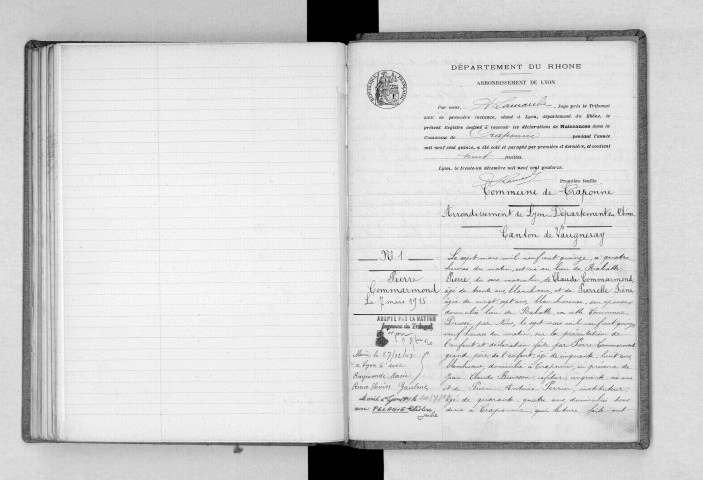 DÉPARTEMENT DU RHONE
ARRONDISSEMENT DE LYON
RÉPUBLIQUE FRANÇAISE
Par nous, Juge près le Tribunal
civil de première instance, séant à Lyon, département du Rhône, le
présent Registre destiné à recevoir les déclarations de Naissances dans la
Commune de Craponne pendant l'année
mil neuf cent quinze, a été coté et paraphé par première et dernière, et contient
huit feuilles.
Lyon, le trente-un décembre mil neuf cent quatorze.
Première feuille
Commune de Craponne
Arrondissement de Lyon Département du Rhône
Canton de Vaugneray
N° 1
Pierre
Commarmond
Le 7 mars 1915
ADOPTÉ PAR LA NATION
Jugement du Tribunal
Marié le 27/12/43
à Lyon 6e avec
Raymonde Marie
Louise
Marié à Lyon le
avec PELAGIE
Le sept mars mil neuf cent quinze, à quatre
heures du matin, est né au lieu de
Pierre, du sexe masculin de Claude Commarmond,
âgé de trente ans, blanchisseur, et de Pierrette
âgée de vingt sept ans, blanchisseuse, son épouse
domiciliés lieu de en cette Commune
Dressé par Nous, le sept mars mil neuf cent quinze
heures du matin sur la présentation de
l'enfant et déclaration faite par Pierre Commarmond
grand père de l'enfant, âgé de cinquante huit ans
blanchisseur, domicilié à Craponne, en présence de
Jean Claude cinquante six ans
et de Pierre Antoine Perrin, instituteur,
âgé de quarante quatre ans, domiciliés tous
deux à Craponne, qui lecture faite ont